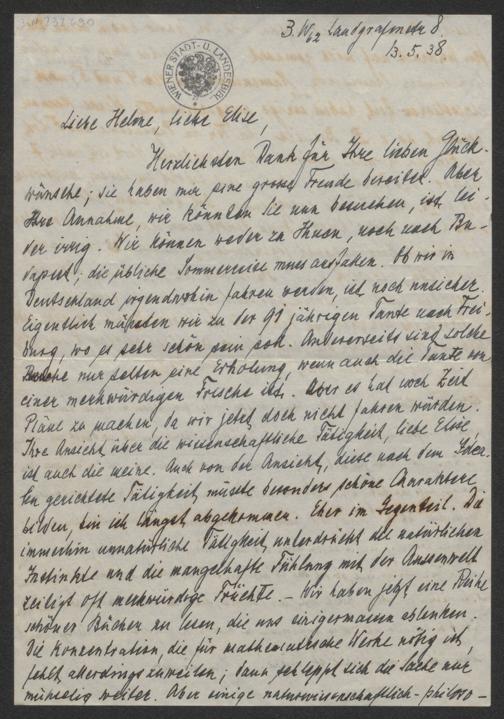 3. W62 Landgrafenstr 8.
13. 5. 38
WIENER STADT- U. LANDESBIBL.
Liebe Helene, liebe Elise,
Herzlichsten Dank für Ihre lieben Glück-
wünsche; sie haben mir eine grosse Freude bereitet. Aber
Ihre Annahme, wir könnten Sie nun besuchen, ist lei-
der irrig. Wir können weder zu Ihnen, noch nach Bu-
dapest; die übliche Sommerreise muss ausfallen. Ob wir in
Deutschland irgendwohin fahren werden, ist noch unsicher.
Eigentlich müssten wir zu der 91 jährigen Tante nach Frei-
burg, wo es sehr schön sein soll. Andererseits sind solche
nur selten eine Erholung, wenn auch die Tante von
einer merkwürdigen Frische ist. Aber es hat noch Zeit
Pläne zu machen, da wir jetzt doch nicht fahren würden.
Ihre Ansicht über die wissenschaftliche Tätigkeit, liebe Elise
ist auch die meine. Auch von der Ansicht, diese nach dem Idea-
len gerichtete Tätigkeit müsste besonders schöne Charaktere
bilden, bin ich längst abgekommen. Eher im Gegenteil. Die
immerhin unnatürliche Tätigkeit unterdrückt die natürlichen
Instinkte und die mangelhafte Fühlung mit der Aussenwelt
zeitigt oft merkwürdige Früchte. – Wir haben jetzt eine Reihe
schöner Bücher zu lesen, die uns einigermassen ablenken.
Die Konzentration, die für mathematische Werke nötig ist,
fehlt allerdings zuweilen; dann schleppt sich die Sache nur
mühselig weiter. Aber einige naturwissenschaftlich-philoso-